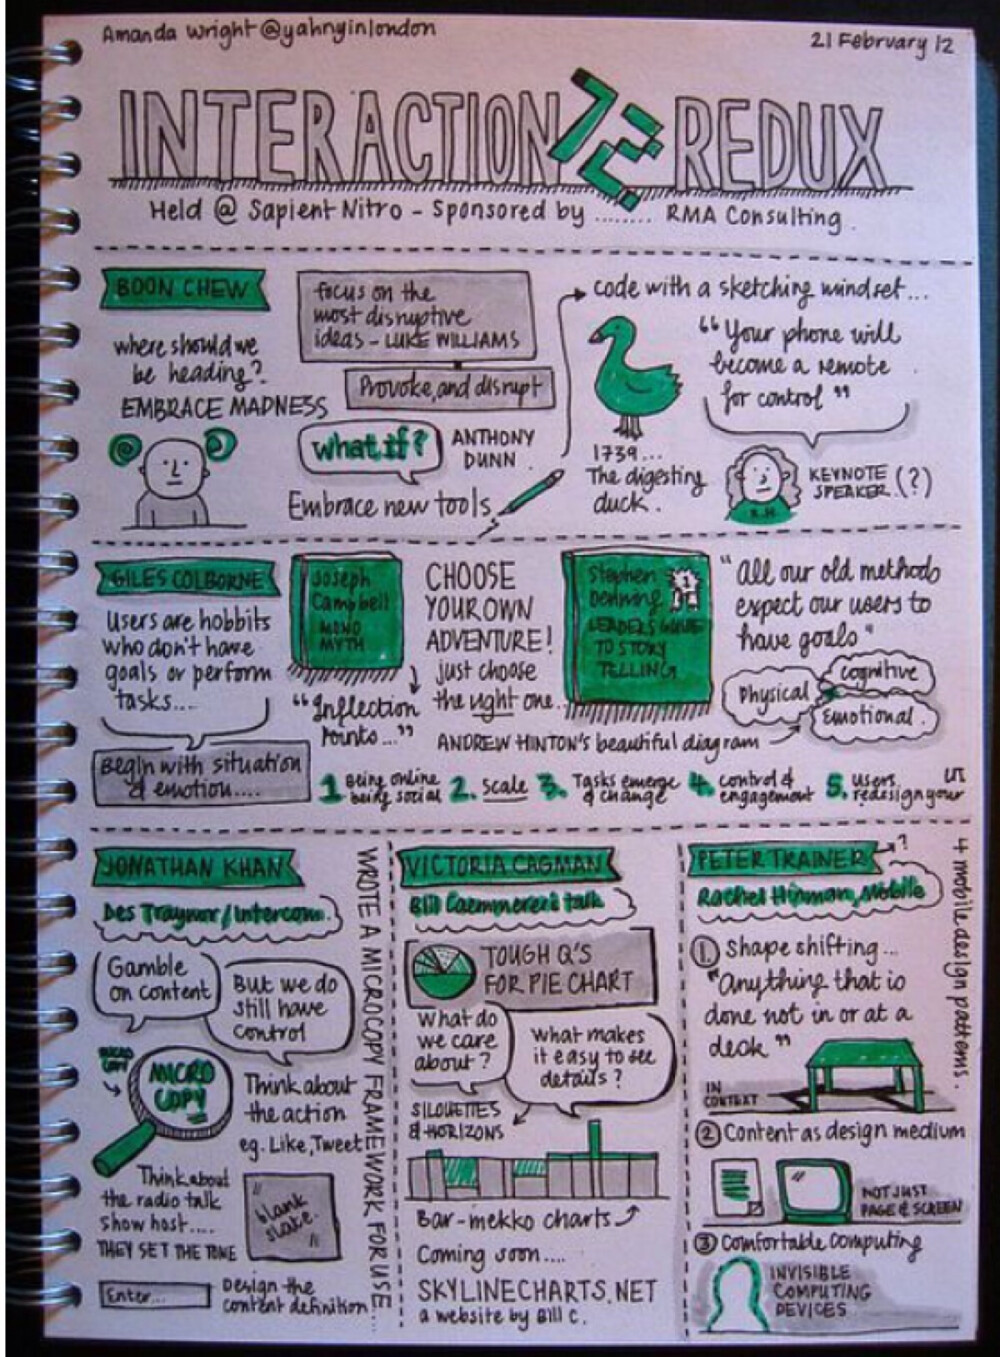 Amanda Wright @yahnyinlondon
21 February 12
INTERACTION 12 REDUX
Held @ SapientNitro - Sponsored by ........ RMA Consulting.
BOON CHEW
where should we
be heading?
EMBRACE MADNESS
focus on the
most disruptive
ideas - LUKE WILLIAMS
Provoke, and disrupt
What if?
ANTHONY
DUNN
Embrace new tools
code with a sketching mindset...
1739...
The digesting
duck.
"Your phone will
become a remote
for control"
KEYNOTE
SPEAKER (?)
R.H.
GILES COLBORNE
Users are hobbits
who don't have
goals or perform
tasks....
Begin with situation
& emotion....
Joseph
Campbell
MONO
MYTH
"Inflection
Points..."
CHOOSE
YOUR OWN
ADVENTURE!
just choose
the right one..
Stephen
Denning
LEADERS GUIDE
TO STORY
TELLING
"All our old methods
expect our users to
have goals"
Physical
cognitive
Emotional.
ANDREW HINTON'S beautiful diagram
1 Being online
being social
2. Scale
3. Tasks emerge
& change
4. control &
engagement
5. users
redesign your
UI
JONATHAN KHAN
Des Traynor/Intercom.
Gamble
on content
But we do
still have
control
MICRO
COPY
MICRO
COPY
Think about
the action
eg. Like, Tweet
Think about
the radio talk
show host....
THEY SET THE TONE
"blank
slate."
Enter...
Design the
content definition
WROTE A MICROCOPY FRAMEWORK FOR USE...
VICTORIA CAGMAN
Bill Caemmerer's talk
TOUGH Q'S
FOR PIE CHART
What do
we care
about?
What makes
it easy to see
details?
SILOUETTES
& HORIZONS
Bar-mekko charts
Coming soon....
SKYLINECHARTS.NET
a website by Bill C.
PETER TRAINER ?
Rachel Hinman, Mobile
4 mobile design patterns.
1. Shape shifting...
"Anything that is
done not in or at a
desk"
IN
CONTEXT
2 Content as design medium
NOT JUST
PAGE & SCREEN
3 Comfortable Computing
INVISIBLE
COMPUTING
DEVICES